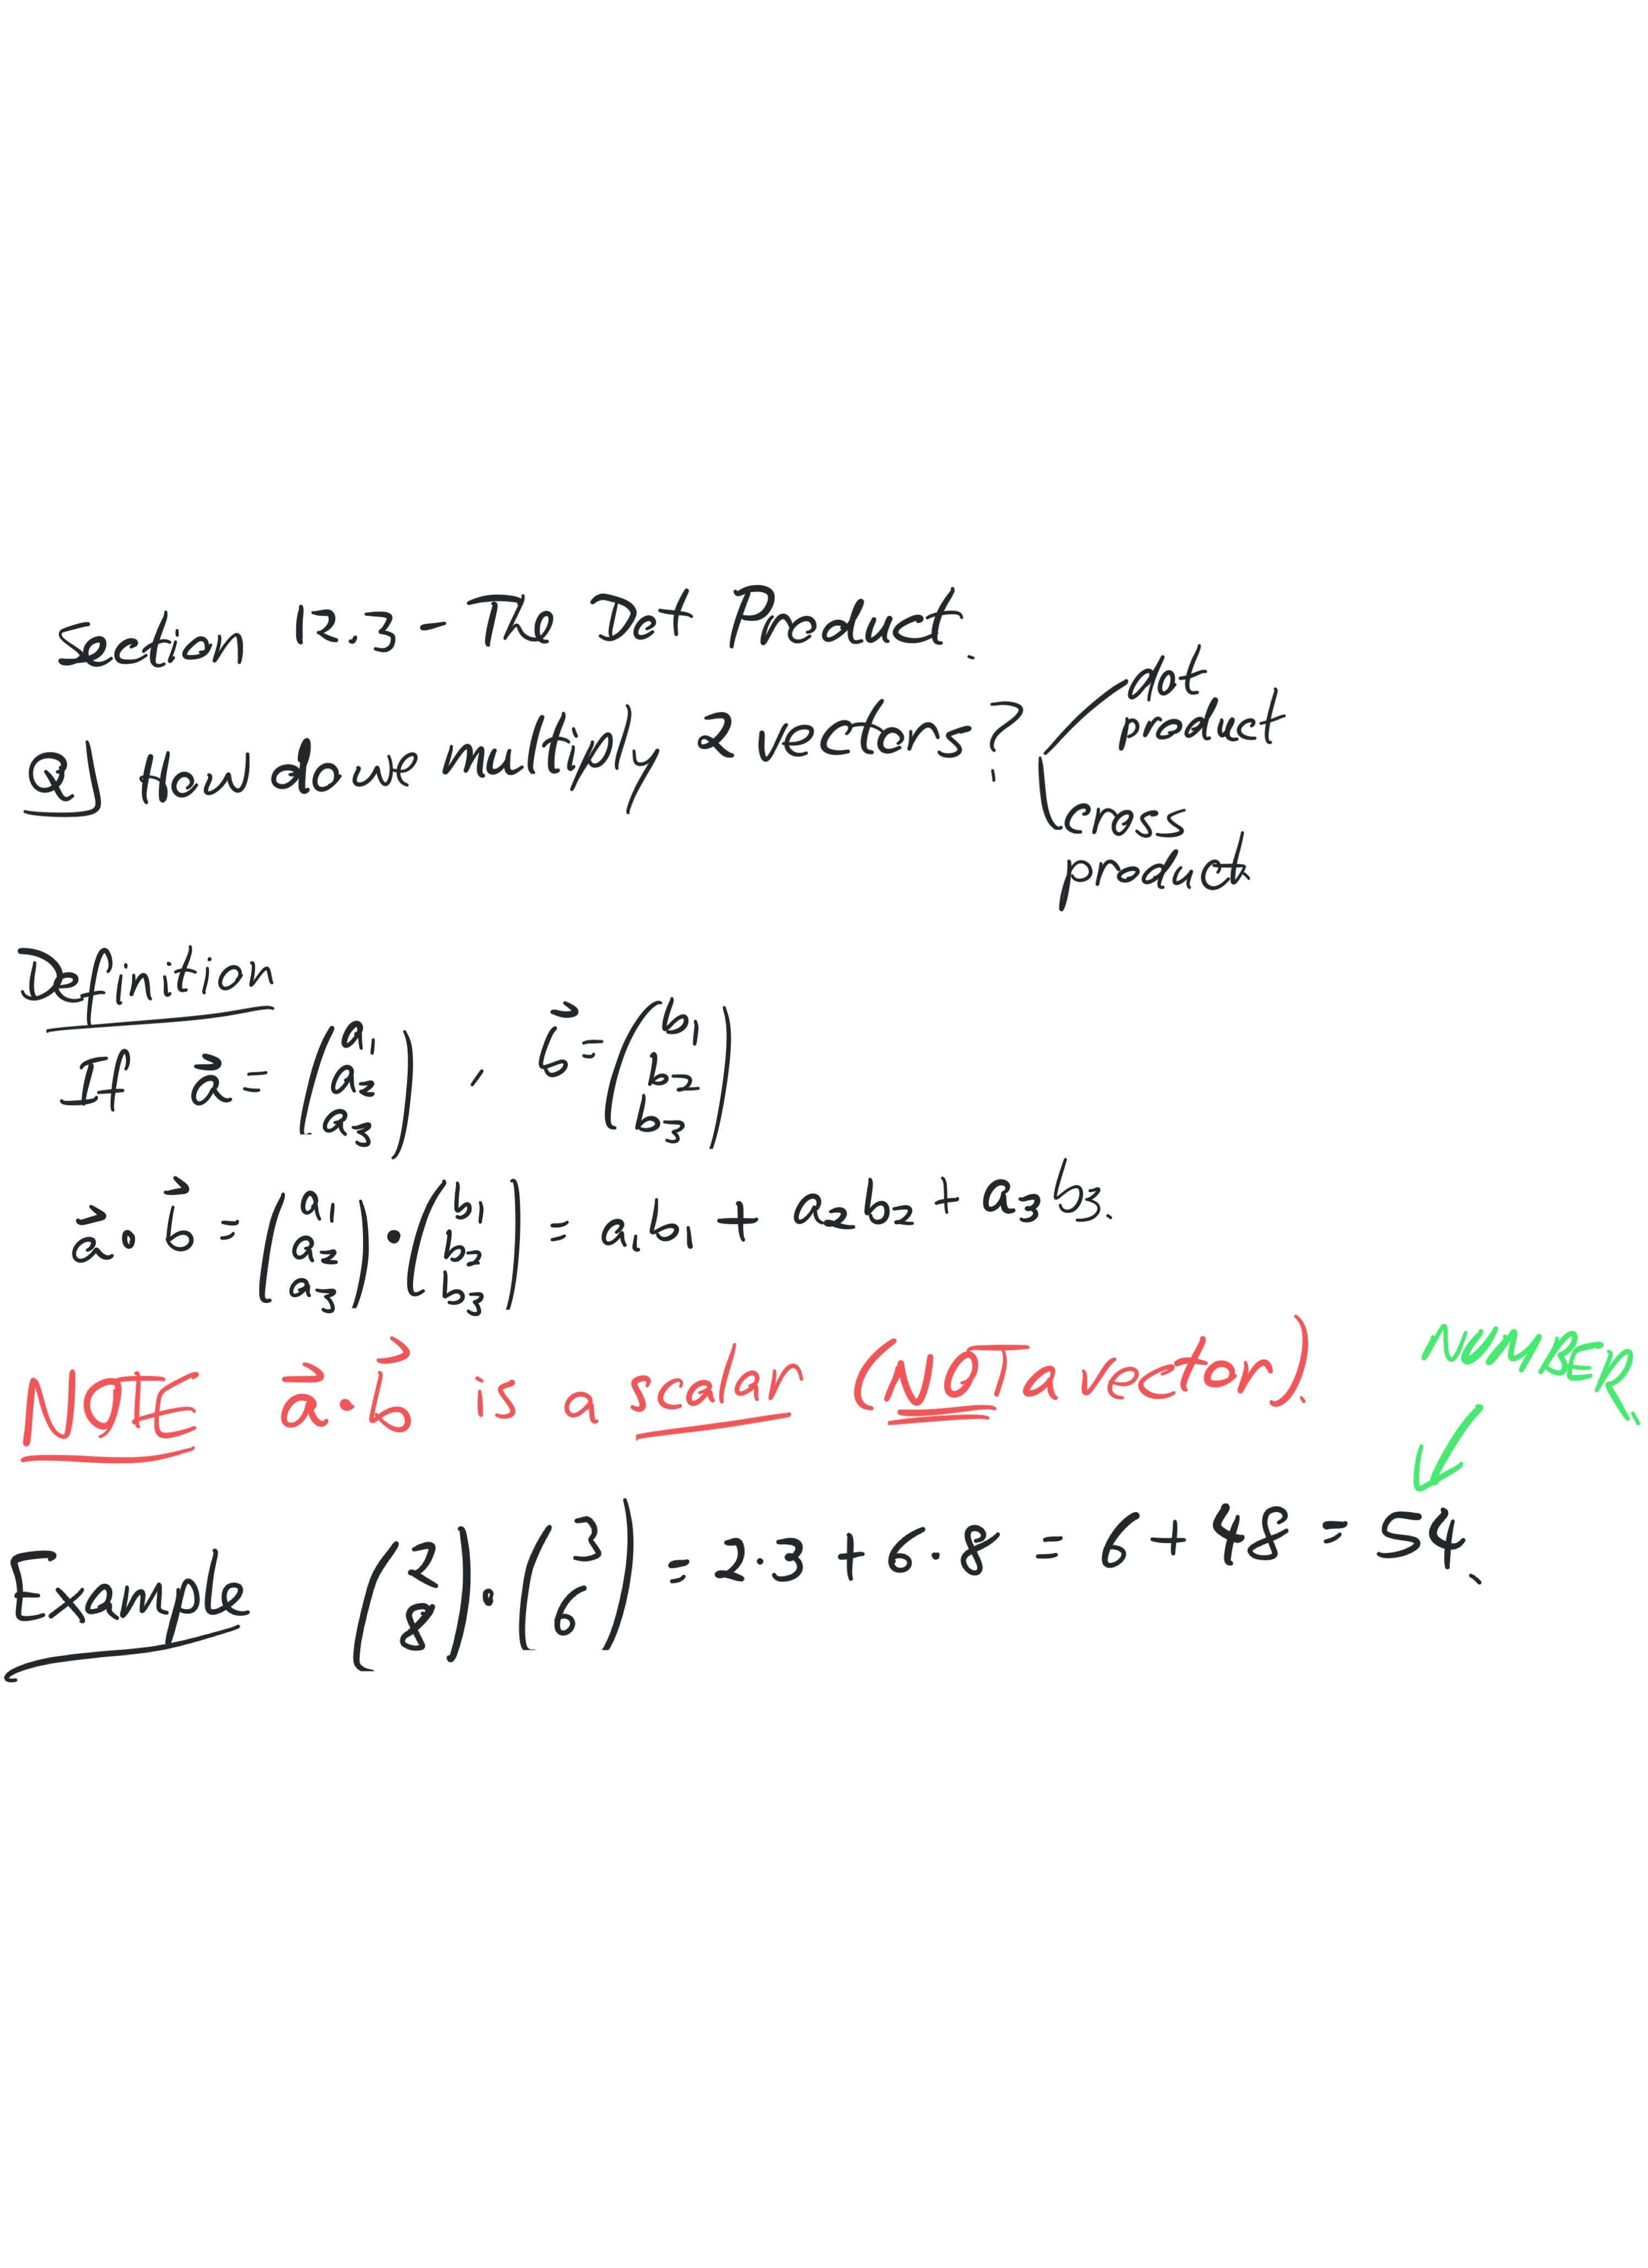 Section 12.3 - The Dot Product.
Q] How do we multiply 2 vectors?
dot
product
cross
product
Definition
If a⃗ = (a₁ a₂ a₃) , b⃗ = (b₁ b₂ b₃)
a⃗ • b⃗ = (a₁ a₂ a₃) • (b₁ b₂ b₃) = a₁b₁ + a₂b₂ + a₃b₃.
NOTE a⃗ • b⃗ is a scalar (NOT a vector).
NUMBER.
Example (2 8) • (3 6) = 2·3 + 6·8 = 6 + 48 = 54.